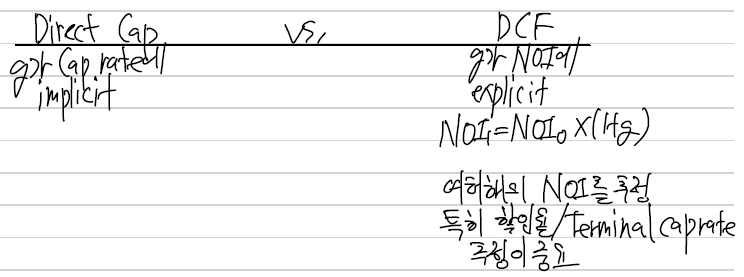 Direct Cap vs. DCF
g가 Cap rate에 g가 NOI에
implicit explicit
NOI₁=NOI₀×(1+g)
여러해의 NOI를 추정
특히 할인율/Terminal cap rate
추정이 중요